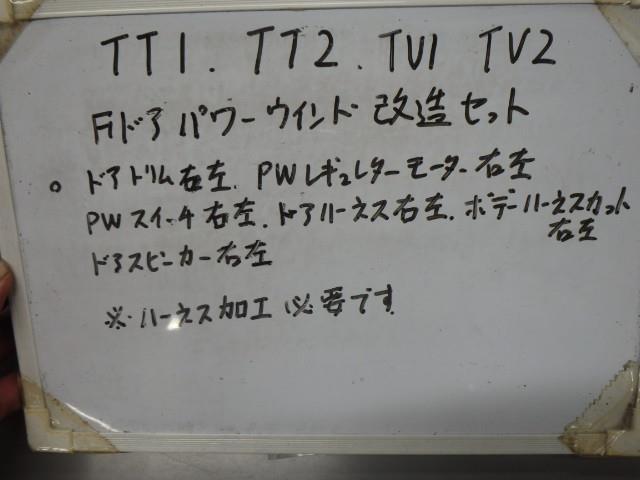 TT1. TT2. TV1 TV2
Frドア パワーウインド 改造セット
○ ドアトリム右左. PWレギュレターモーター右左
PWスイッチ右左. ドアハーネス右左. ボデーハーネスカット
右左
ドアスピーカー右左
※ハーネス加工必要です